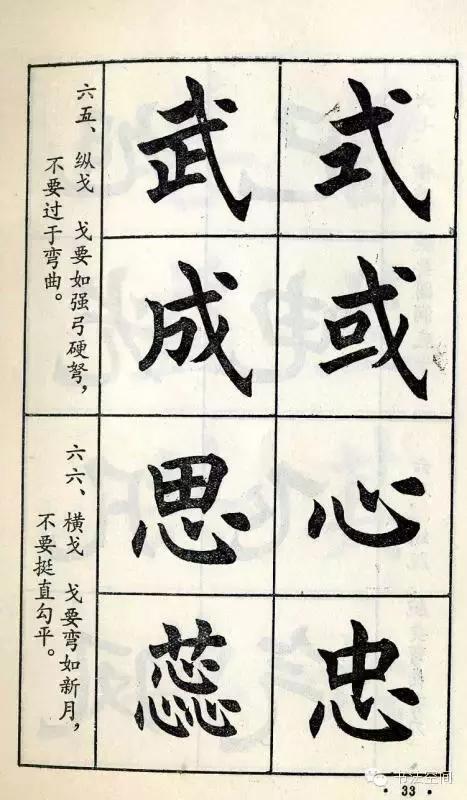 式武
六五、纵戈 戈要如强弓硬弩，
不要过于弯曲。
或成
心思
六六、横戈 戈要弯如新月，
不要挺直勾平。
忠蕊
书法空间
· 33 ·